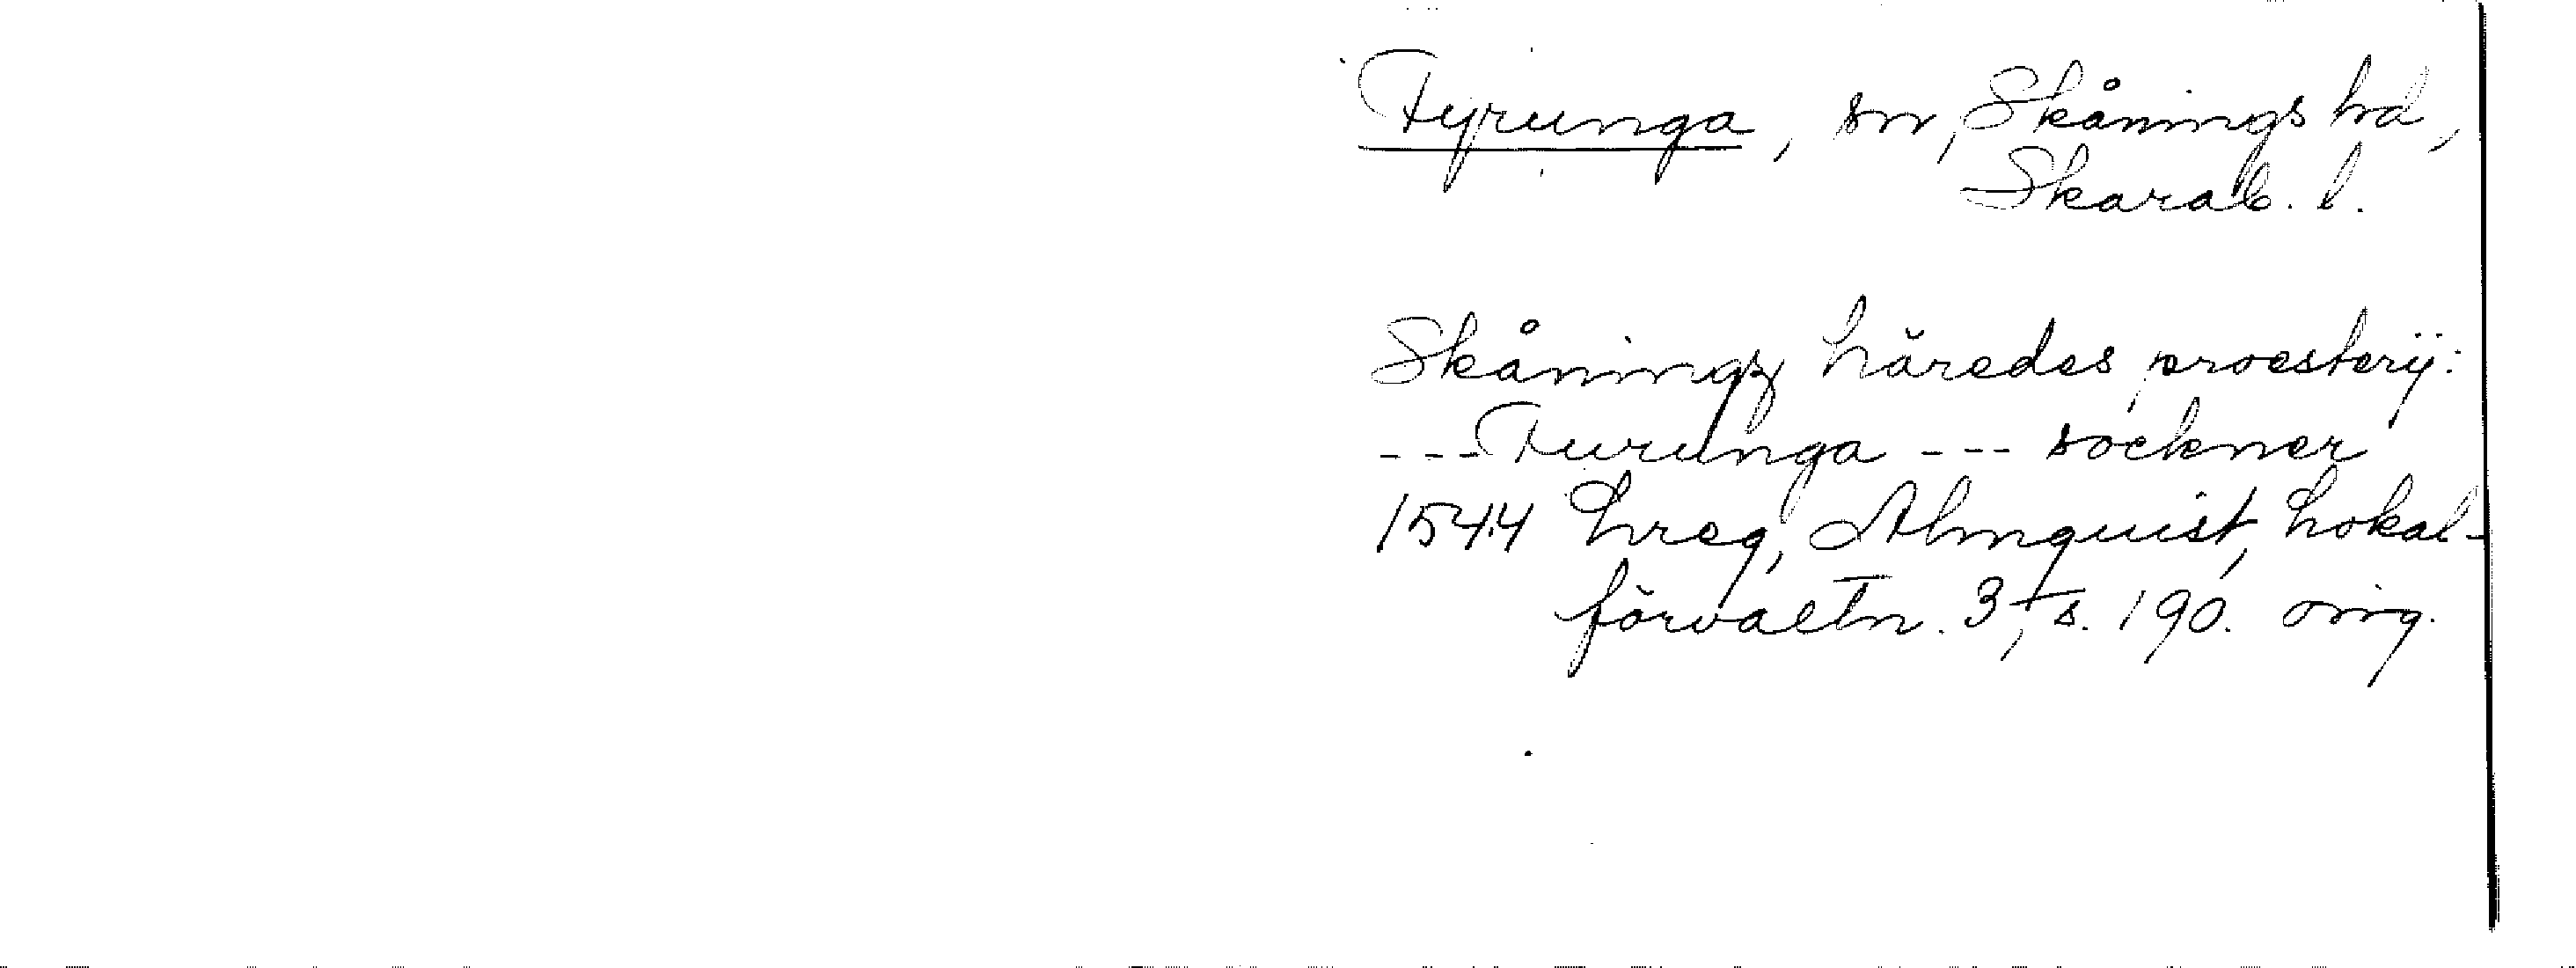 Fyrunga, sn, Skånings hd,
Skarab. l.
Skåningz häredes proesterij:
---Furunga --- sockner
1544 hreg, Almquist, Lokal-
förvaltn. 3, s. 190. orig.